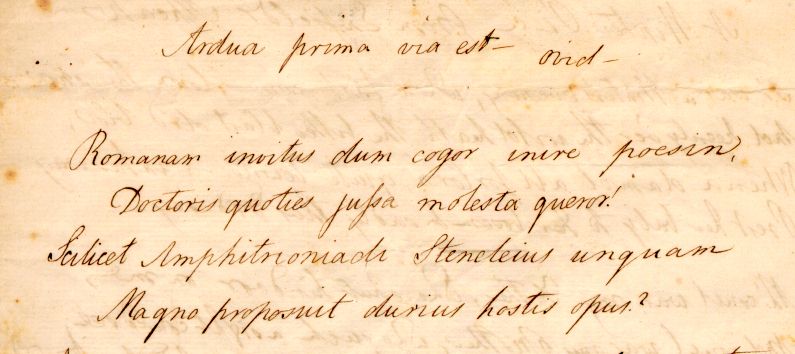 Ardua prima via est — Ovid —
Romanam invitus dum cogor inire poesin,
Doctoris quoties jussa molesta queror!
Scilicet Amphitrioniadi Steneleius unquam
Magno proposuit durius hostis opus?